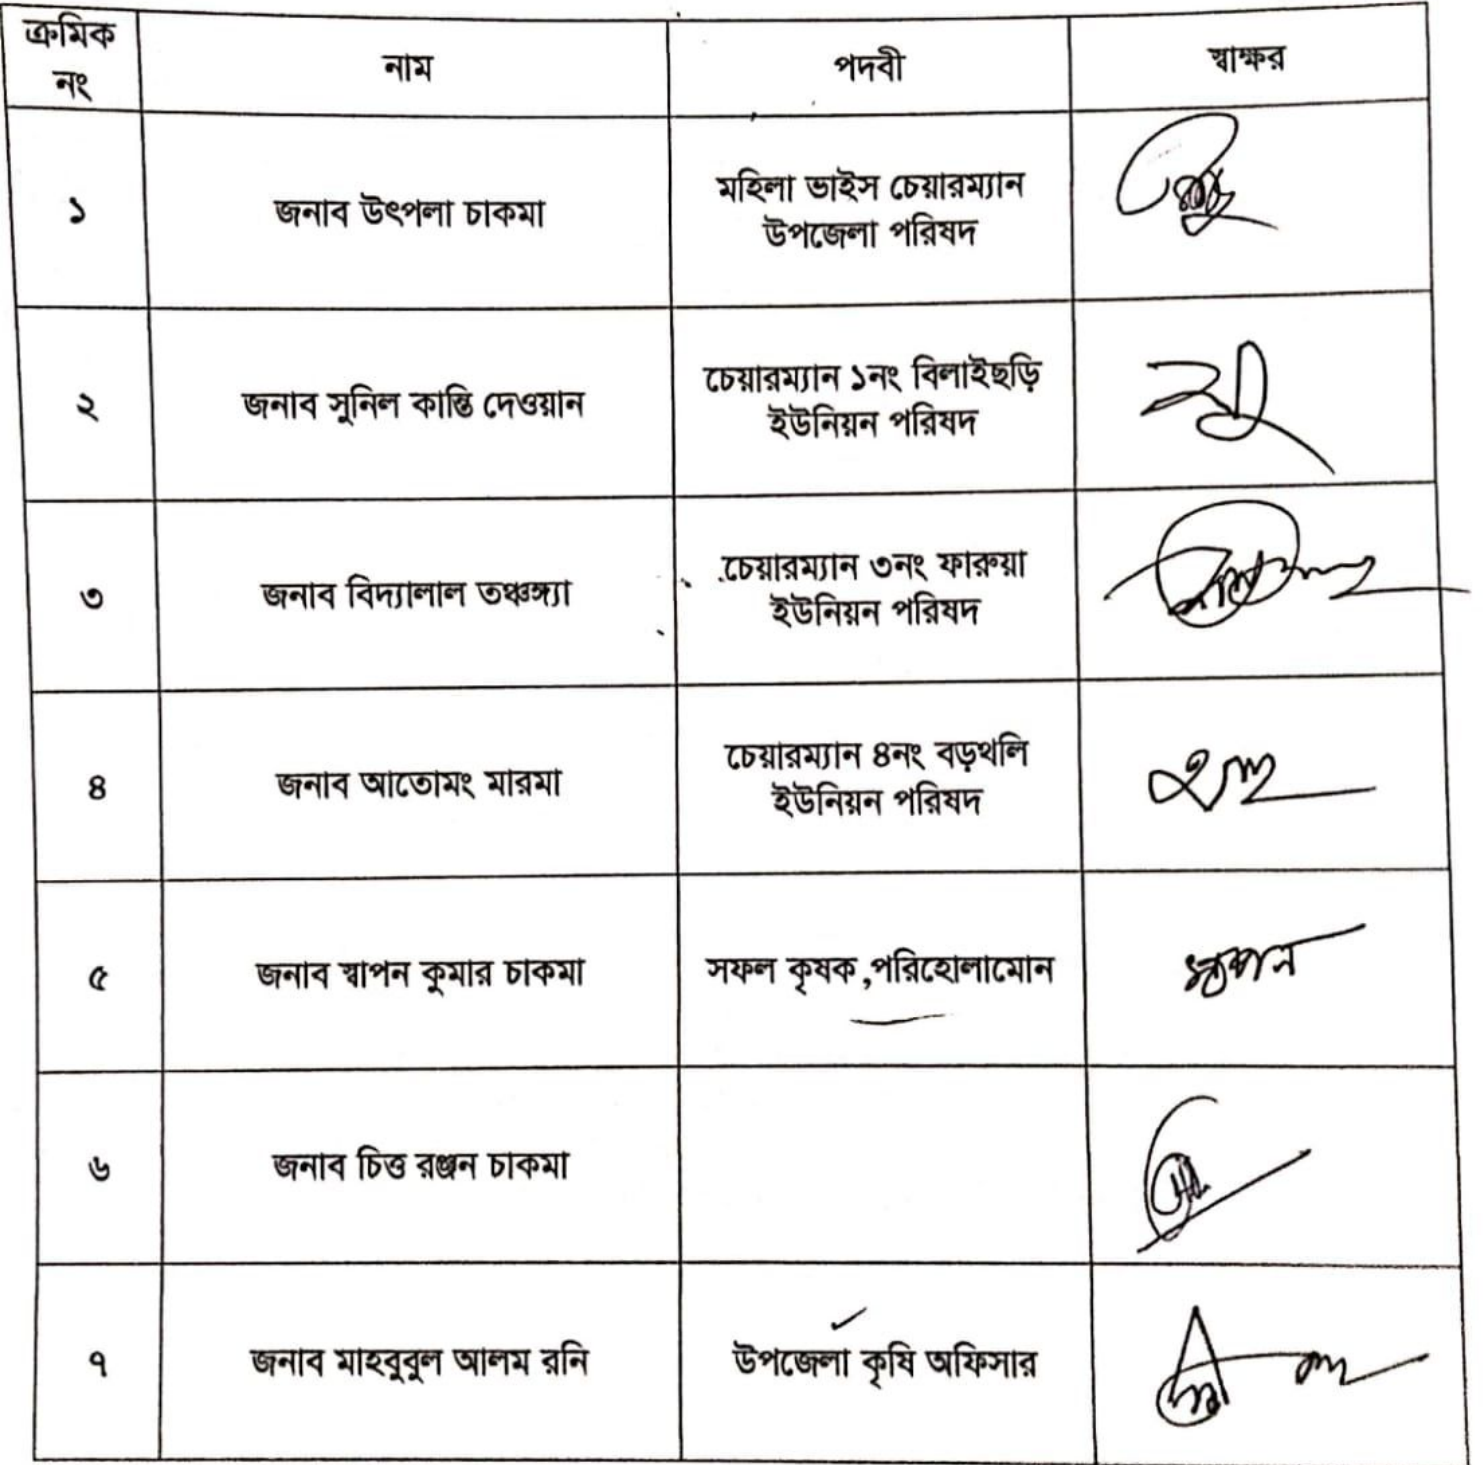 ক্রমিক
নং
নাম
পদবী
স্বাক্ষর
১
জনাব উৎপলা চাকমা
মহিলা ভাইস চেয়ারম্যান
উপজেলা পরিষদ
২
জনাব সুনিল কান্তি দেওয়ান
চেয়ারম্যান ১নং বিলাইছড়ি
ইউনিয়ন পরিষদ
৩
জনাব বিদ্যালাল তঞ্চঙ্গ্যা
চেয়ারম্যান ৩নং ফারুয়া
ইউনিয়ন পরিষদ
৪
জনাব আতোমং মারমা
চেয়ারম্যান ৪নং বড়থলি
ইউনিয়ন পরিষদ
৫
জনাব স্বাপন কুমার চাকমা
সফল কৃষক,পরিহোলামোন
৬
জনাব চিত্ত রঞ্জন চাকমা
৭
জনাব মাহবুবুল আলম রনি
উপজেলা কৃষি অফিসার